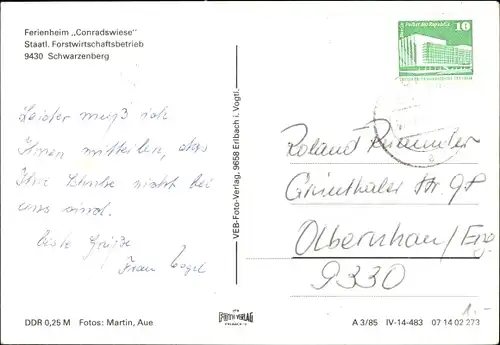 Ferienheim „Conradswiese"
Staatl. Forstwirtschaftsbetrieb
9430 Schwarzenberg
Leider muß ich
Ihnen mitteilen, das
Ihre Schuhe nicht bei
uns sind.
Liebe Grüße
Frau Vogel
VEB-Foto-Verlag, 9658 Erlbach i. Vogtl.
10
Roland
Grünthaler Str. 98
Olbernhau/Erzg
9330
1.-
DDR 0,25 M Fotos: Martin, Aue
FOTO-VERLAG
ERLBACH
A 3/85 IV-14-483 07 14 02 273